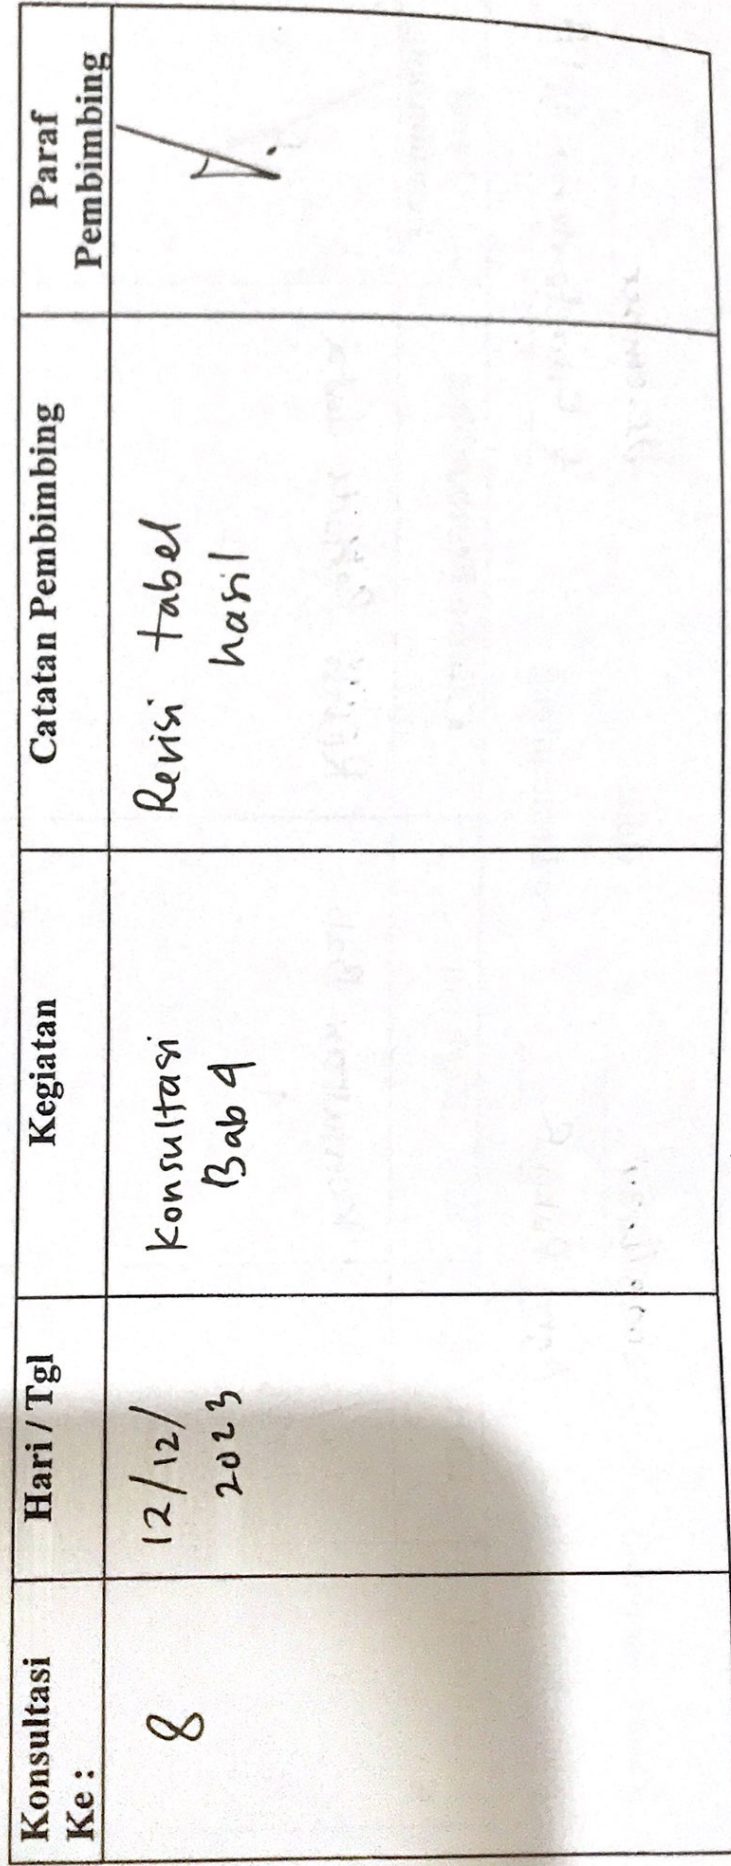 Konsultasi
Ke :
Hari / Tgl
Kegiatan
Catatan Pembimbing
Paraf
Pembimbing
8
12/12/
2023
Konsultasi
Bab 4
Revisi tabel
hasil